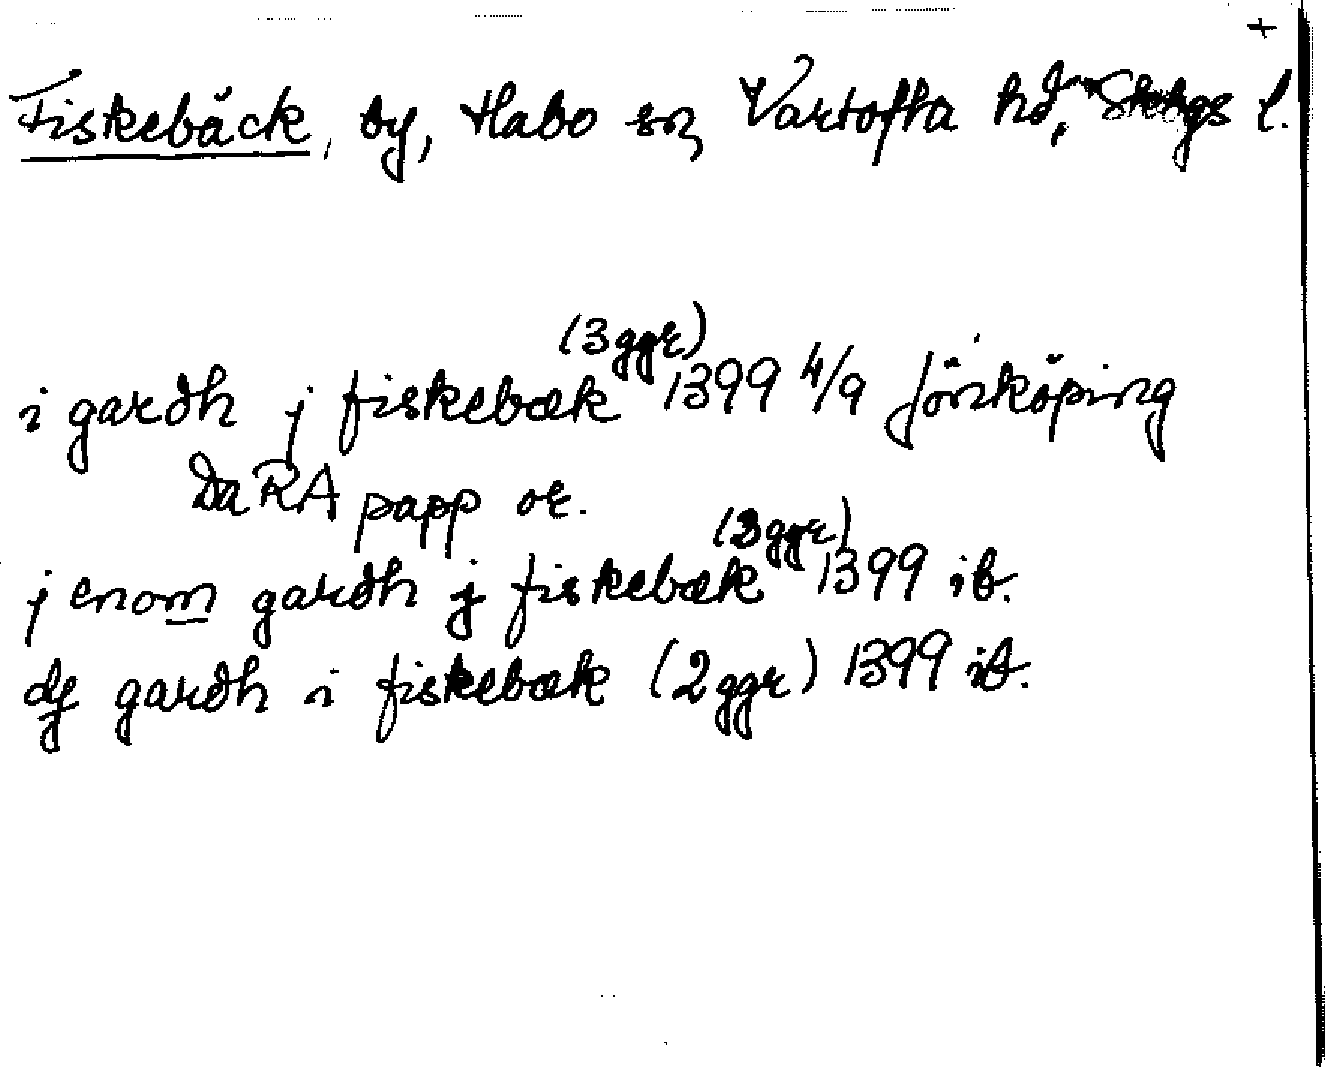 +
Fiskebäck, by, Habo sn, Vartofta hd, Skbgs l.
i gardh j fiskebæk (3 ggr) 1399 4/9 Jönköping
DaRA papp or.
j enom gardh j fiskebæk (3 ggr) 1399 ib.
aff gardh i fiskebæk (2 ggr) 1399 ib.